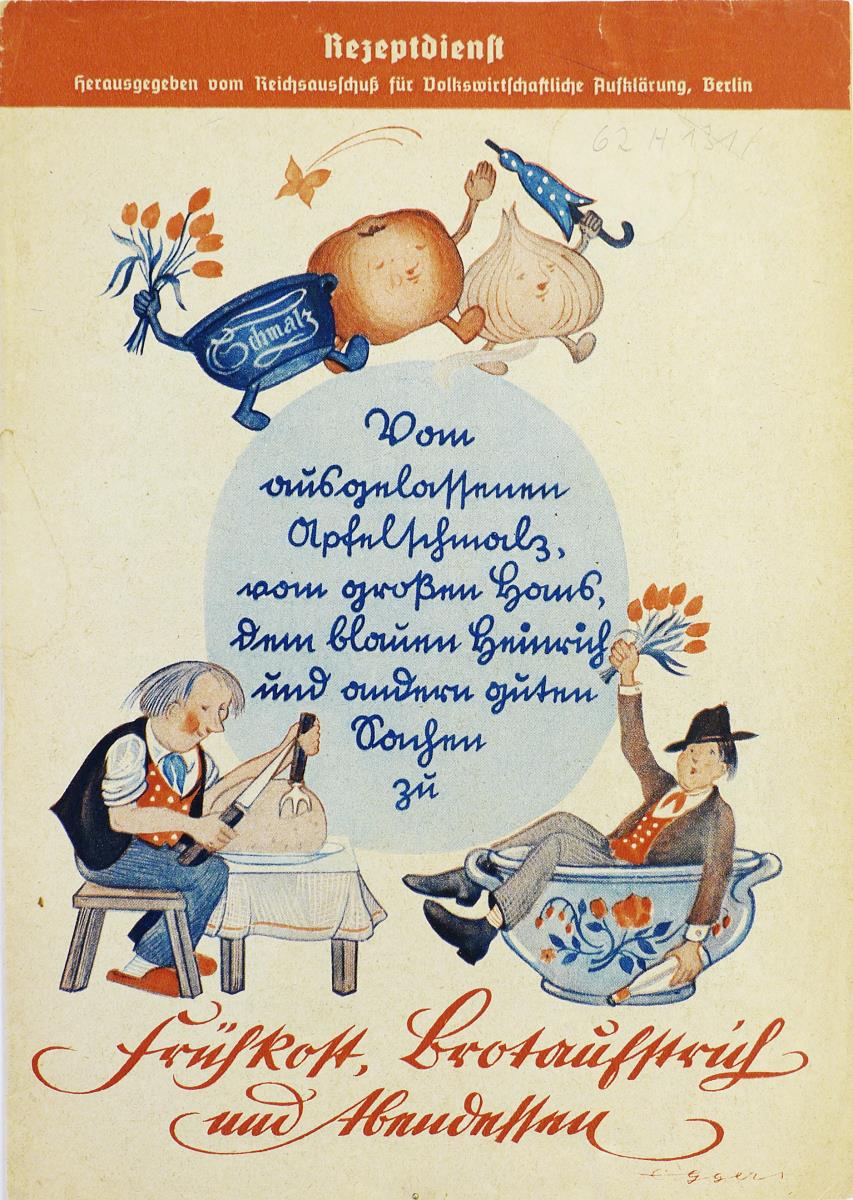 Rezeptdienst
Herausgegeben vom Reichsausschuß für Volkswirtschaftliche Aufklärung, Berlin
62 H 131/
Schmalz
Vom
ausgelassenen
Apfelschmalz,
vom großen Hans,
dem blauen Heinrich
und andern guten
Sachen
zu
Frühkost, Brotaufstrich
und Abendessen